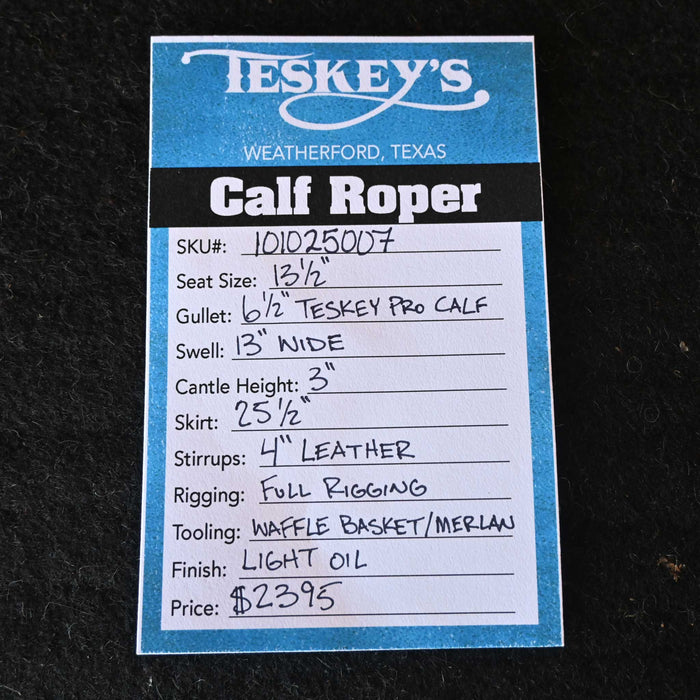 TESKEY'S
WEATHERFORD, TEXAS
Calf Roper
SKU#: 101025007
Seat Size: 13½"
Gullet: 6½" TESKEY PRO CALF
Swell: 13" WIDE
Cantle Height: 3"
Skirt: 25½"
Stirrups: 4" LEATHER
Rigging: FULL RIGGING
Tooling: WAFFLE BASKET/MERLAN
Finish: LIGHT OIL
Price: $2395